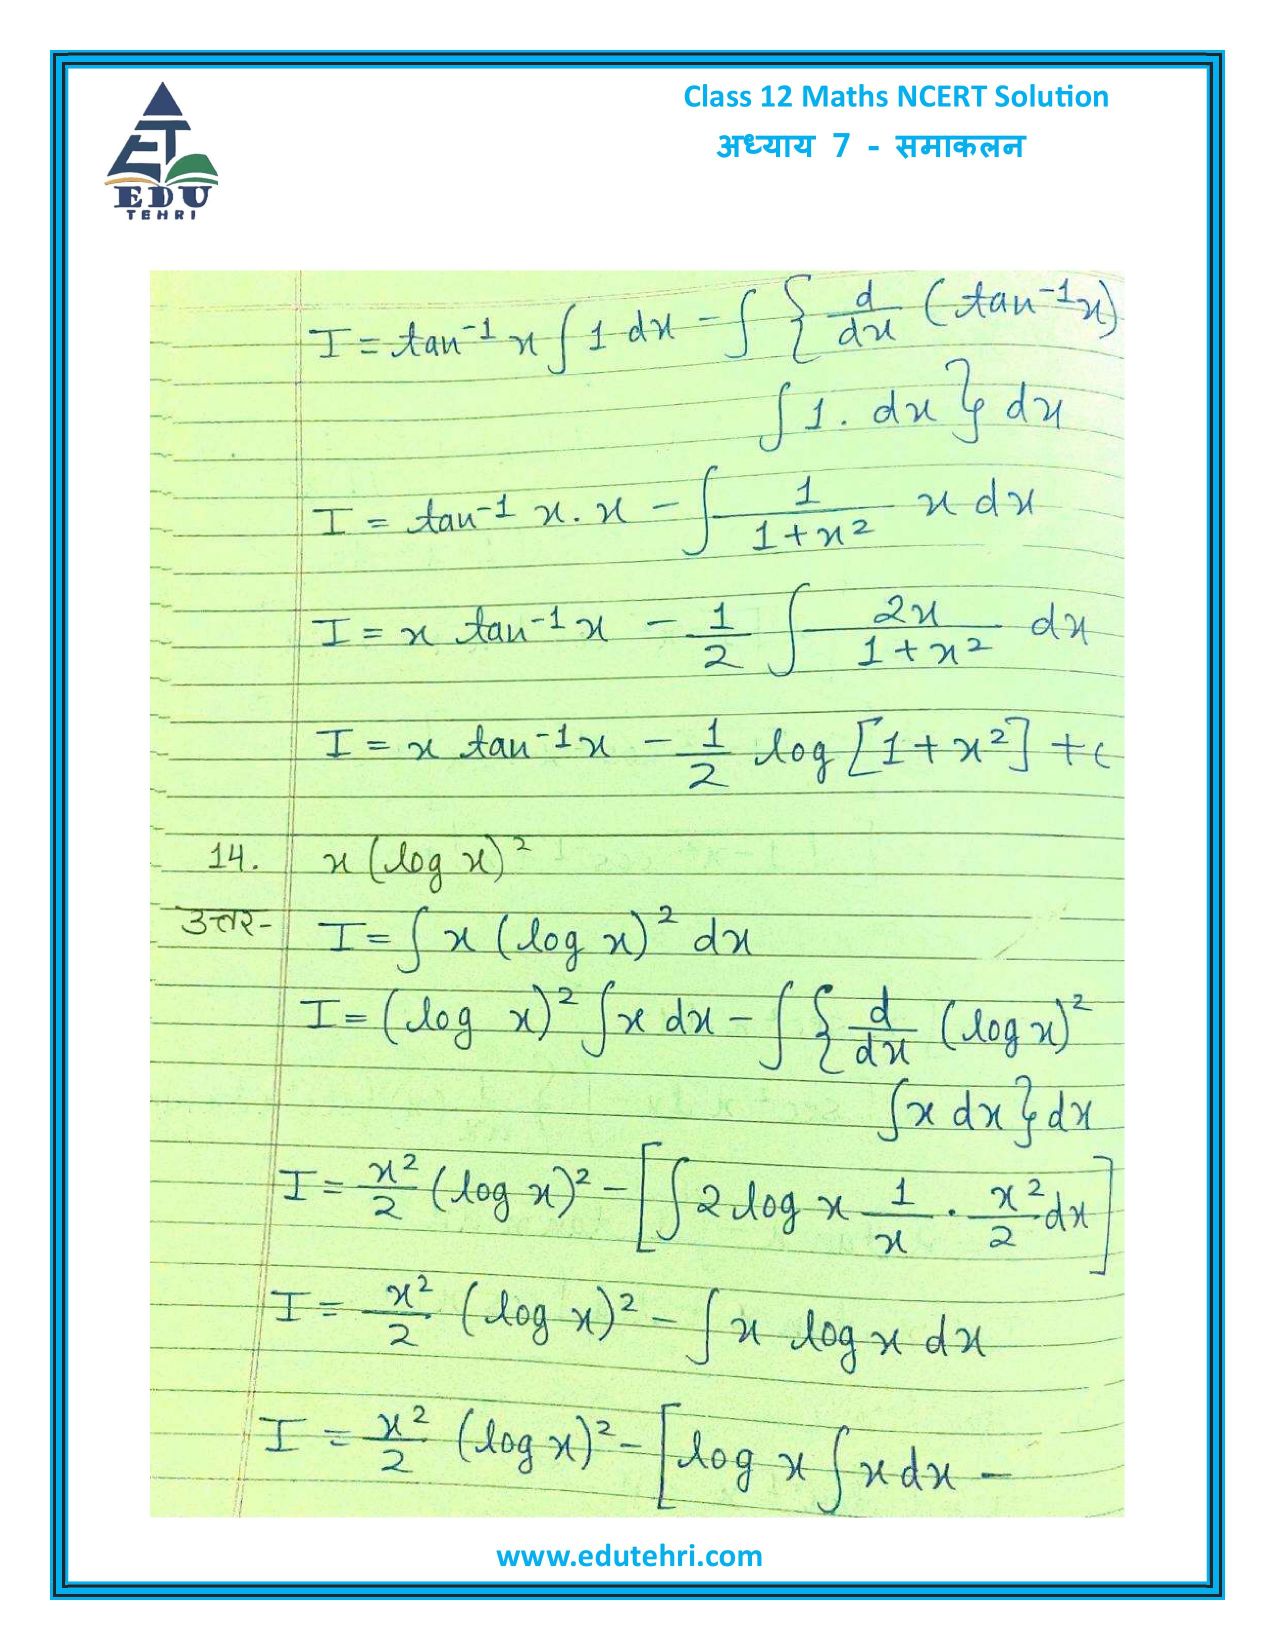 Class 12 Maths NCERT Solution
अध्याय 7 - समाकलन
EDU
TEHRI
I = tan⁻¹ x ∫ 1 dx - ∫ { d/dx (tan⁻¹x)
∫ 1. dx } dx
I = tan⁻¹ x. x - ∫ 1/(1+x²) x dx
I = x tan⁻¹x - 1/2 ∫ 2x/(1+x²) dx
I = x tan⁻¹x - 1/2 log [1+x²] + c
14. x (log x)²
उत्तर- I = ∫ x (log x)² dx
I = (log x)² ∫ x dx - ∫ { d/dx (log x)²
∫ x dx } dx
I = x²/2 (log x)² - [ ∫ 2 log x 1/x . x²/2 dx ]
I = x²/2 (log x)² - ∫ x log x dx
I = x²/2 (log x)² - [ log x ∫ x dx -
www.edutehri.com